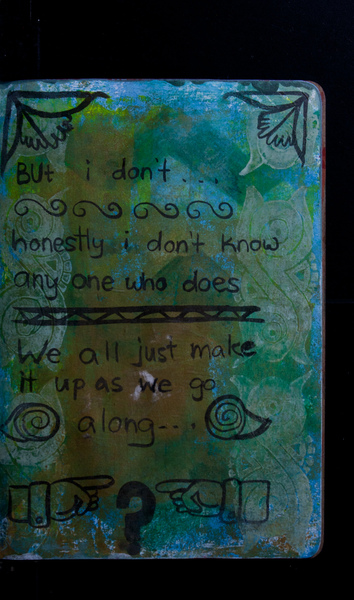 But i don't . . .
honestly i don't know
any one who does
We all just make
it up as we go
along-- . .
?